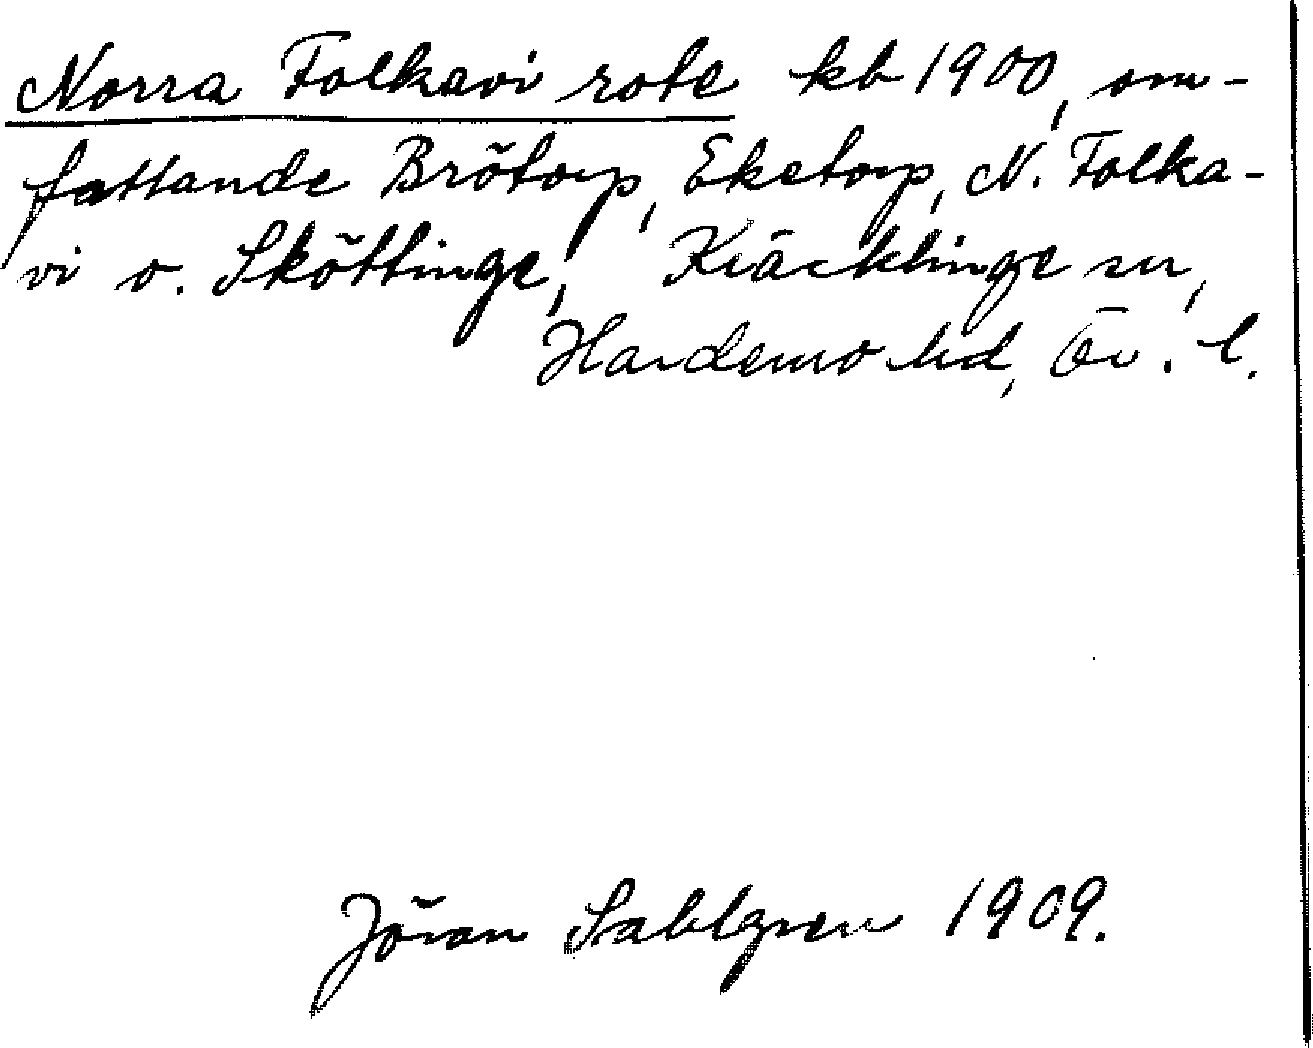 Norra Folkavi rote kb 1900, om-
fattande Brötorp, Eketorp, N. Folka-
vi o. Sköttinge, Kräcklinge sn,
Hardemo hd, Ör. l.
Jöran Sahlgren 1909.